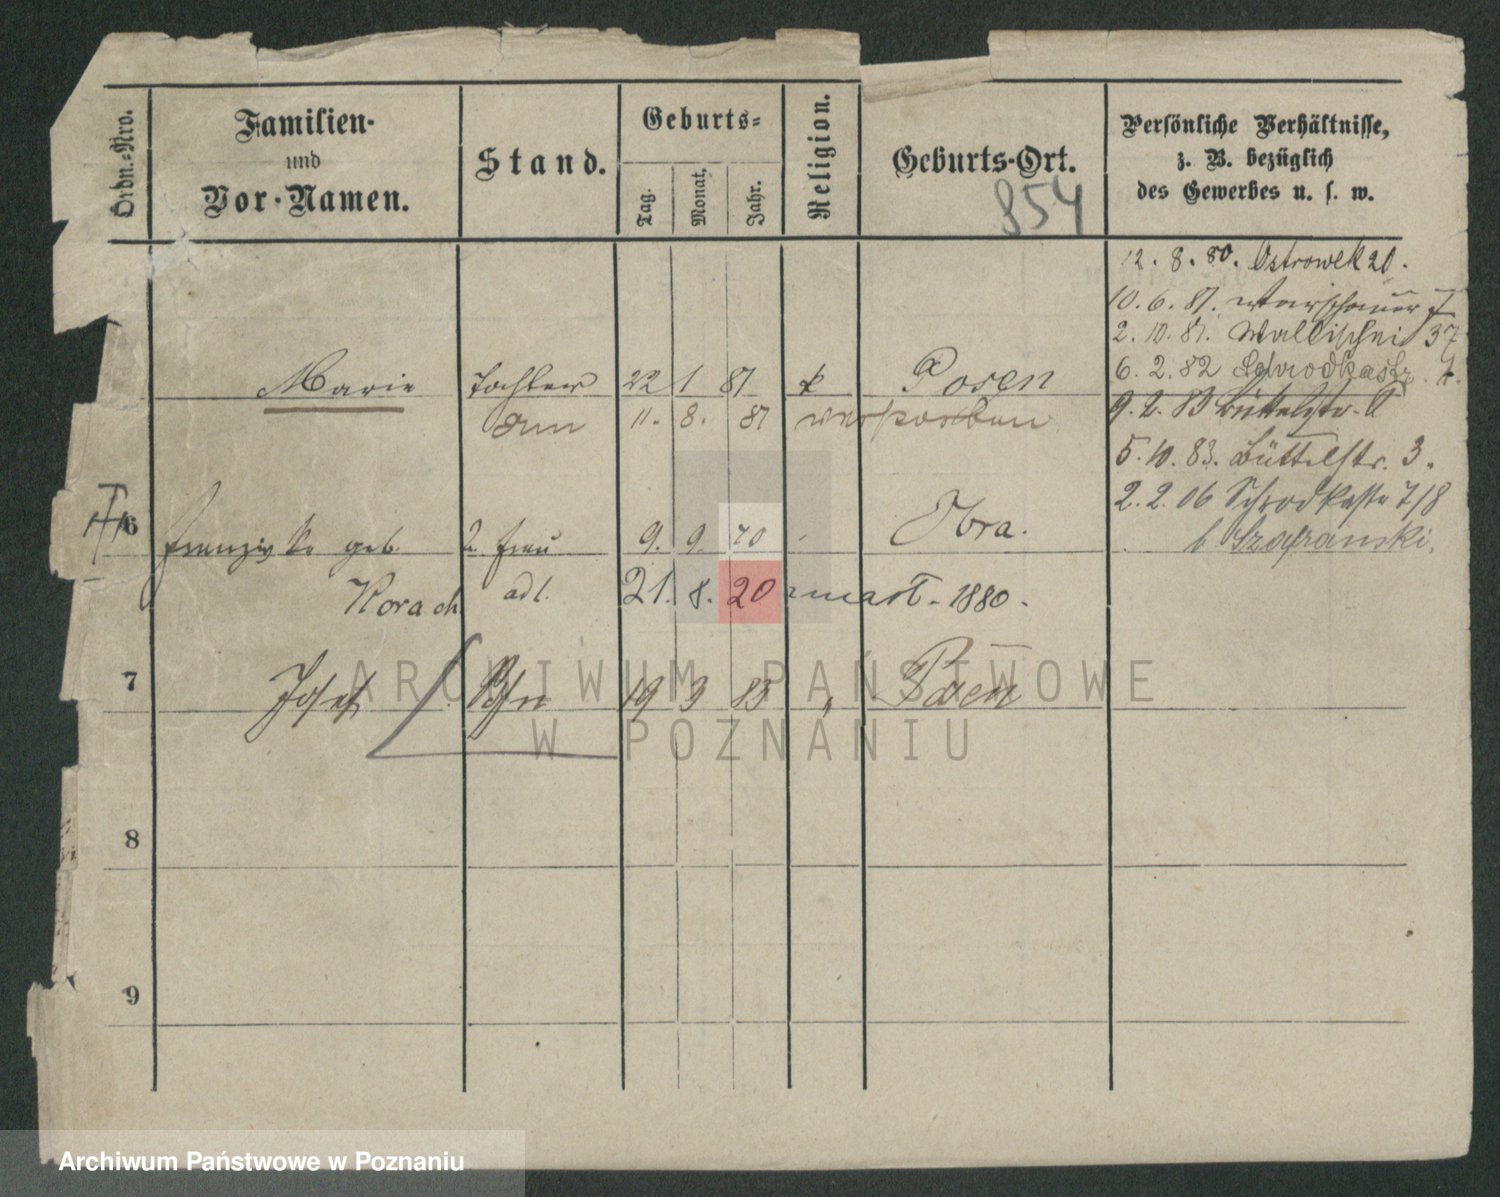 Ordn.=Nro.
Familien-
und
Vor-Namen.
Stand.
Geburts=
Tag.
Monat.
Jahr.
Religion.
Geburts-Ort.
854
Persönliche Verhältnisse,
z. B. bezüglich
des Gewerbes u. s. w.
12. 8. 80. Ostrowek 20.
10. 6. 81. Warschauer
2. 10. 81. Wallischei 37
6. 2. 82 Schrodkastr.
Marie Tochter 22 1 81 k Posen
9. 2. 83 Büttelstr.
am 11. 8. 81 verstorben
5. 10. 83. Büttelstr. 3.
2. 2. 06 Schrodkastr 7/8
b. Szafranski.
6 Franziska geb. 2. Frau 9. 9. 70
Korach 21. 8. 20 1880.
ARCHIWUM PAŃSTWOWE
7 Josef Sohn 19 9 83 " Posen
W POZNANIU
8
9
Archiwum Państwowe w Poznaniu